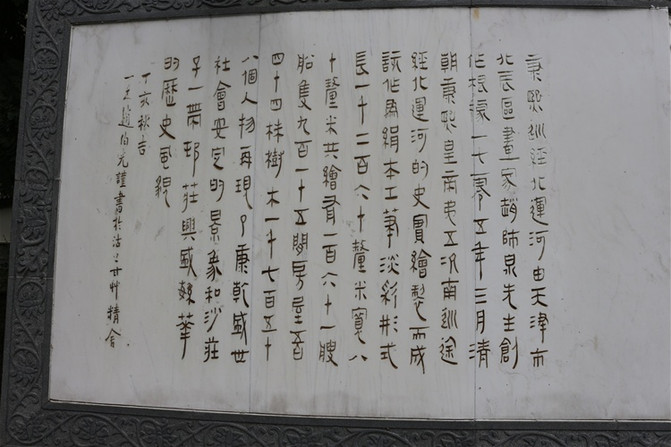 康熙巡經北運河由天津市
北辰區畫家趙師泉先生創
作根據一七零五年三月清
朝康熙皇帝史五次南巡途
經北運河的史實繪製而成
該作為絹本工筆淡彩形式
長一千二百六十釐米寬八
十釐米共繪有一百六十一艘
船隻九百一十五間房屋六百
四十四株樹木一千七百五十
八個人物再現了康乾盛世
社會安定的景象和沙莊
子一帶邨莊興盛繁華
的歷史風貌
丁亥秋吉
趙伯光謹書於沽上 精舍